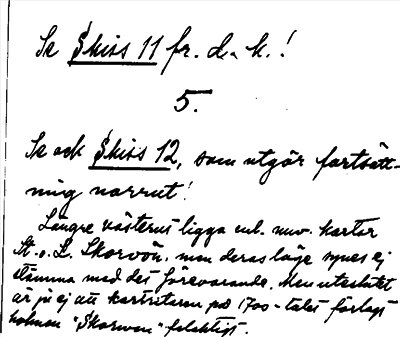 Se Skiss 11 fr. d. k.!
5.
Se ock Skiss 12, som utgör fortsätt-
ning norrut!
Längre västerut ligga enl. nuv. kartor
St. o. L. Skorvön, men deras läge synes ej
stämma med det förevarande. Men uteslutet
är ju ej att kartritaren på 1700-talet förlagt
holmen "Skorwen" felaktigt.